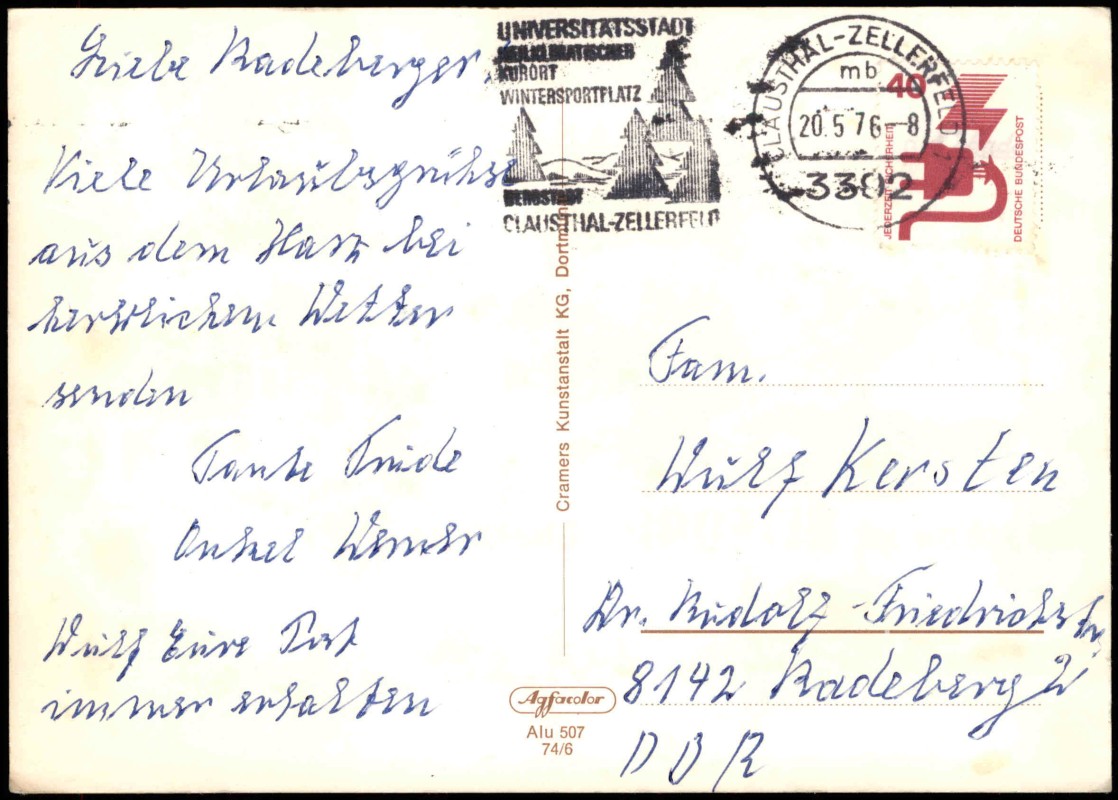 Liebe Radeberger,
Viele Urlaubsgrüße
aus dem Harz bei
herrlichem Wetter
senden
Tante Friede
Onkel Werner
Wulf Eure Post
immer erhalten
UNIVERSITÄTSSTADT
HEILKLIMATISCHER
KURORT
WINTERSPORTPLATZ
BERGSTADT
CLAUSTHAL-ZELLERFELD
CLAUSTHAL-ZELLERFELD 1
mb
20.5.76-8
3392
40
JEDERZEIT SICHERHEIT
DEUTSCHE BUNDESPOST
Cramers Kunstanstalt KG, Dortmund
Fam.
Wulf Kersten
Dr. Rudolf-Friedrichstr
8142 Radeberg 2
DDR
Agfacolor
Alu 507
74/6